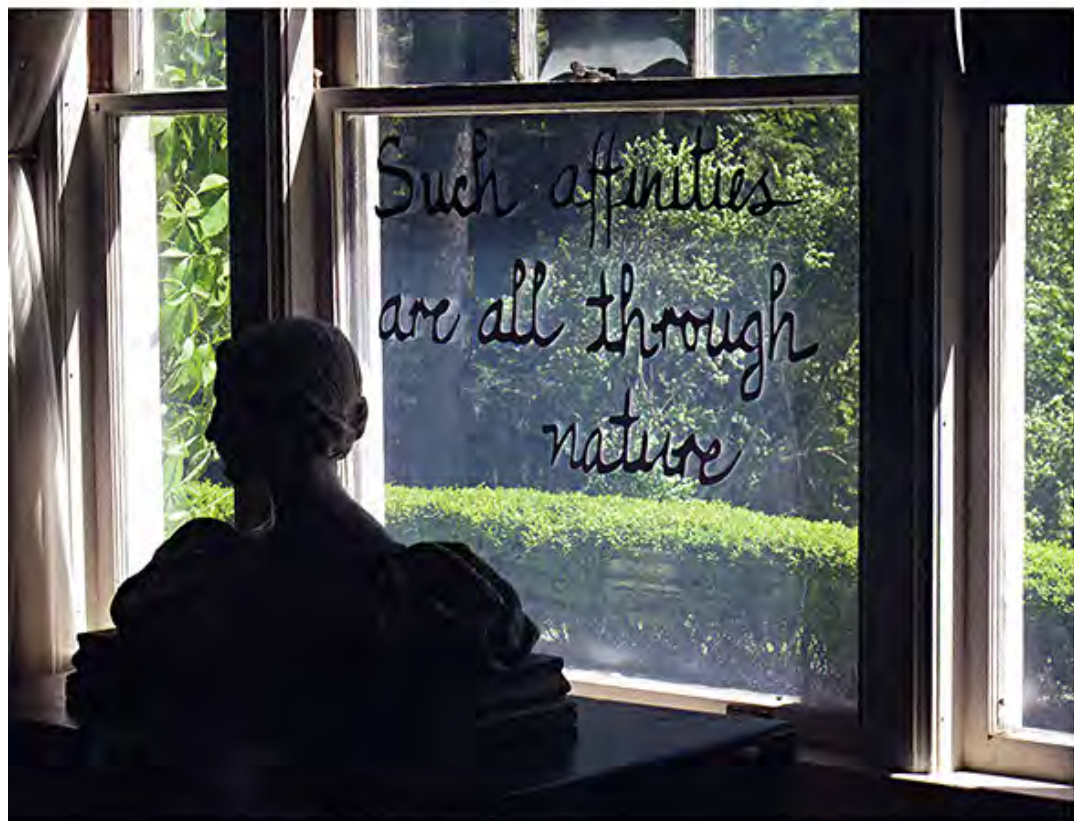 Such affinities
are all through
nature